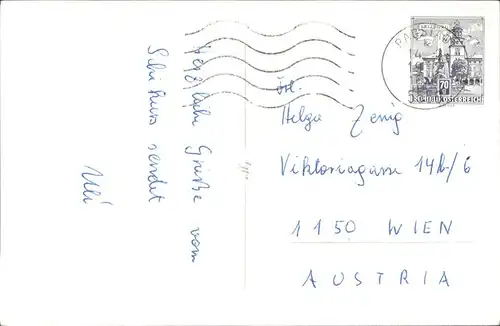 Herzliche Grüße vom
Schikurs sendet
Uli
Frl.
Helga Zenig
Viktoriagasse 14b/6
1150 WIEN
AUSTRIA
70
REPUBLIK ÖSTERREICH